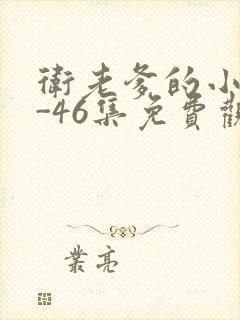 衛老爹的小
-46集免費觀
業亮